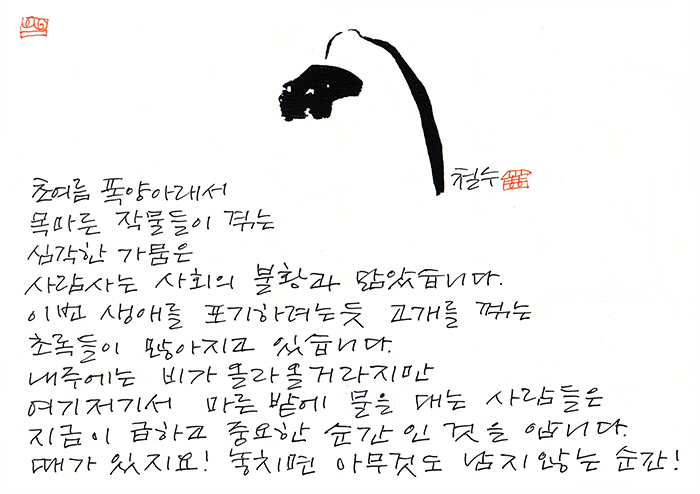 철수
초여름 폭양아래서
목마른 작물들이 겪는
심각한 가뭄은
사람사는 사회의 불황과 닮았습니다.
이번 생애를 포기하려는듯 고개를 꺾는
초록들이 많아지고 있습니다.
내주에는 비가 올라올거라지만
여기저기서 마른 밭에 물을 대는 사람들은
지금이 급하고 중요한 순간 인 것을 압니다.
때가 있지요! 놓치면 아무것도 남지않는 순간!